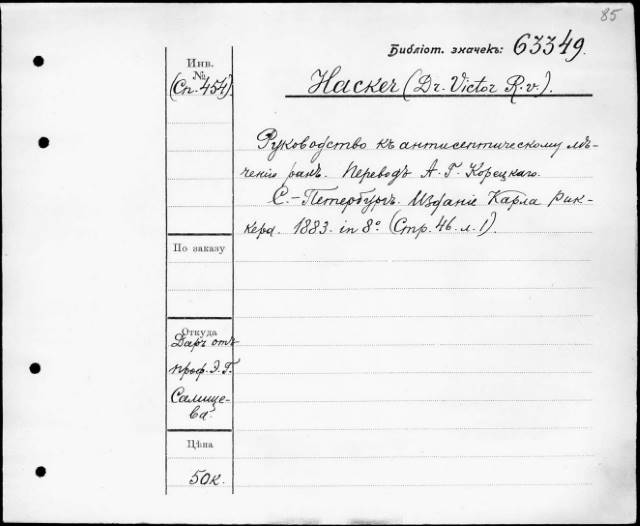 85
Библіот. значекъ: 63349.
Инв.
№
(Сп. 454).
Hacker (Dr. Victor R. v.).
Руководство къ антисептическому лѣ-
ченію ранъ. Переводъ А. Г. Корецкаго.
С.-Петербургъ. Изданіе Карла Рик-
кера. 1883. in 8° (Стр. 46. л. 1).
По заказу
Откуда
Даръ отъ
проф. Э. Г.
Салище-
ва.
Цѣна
50 к.